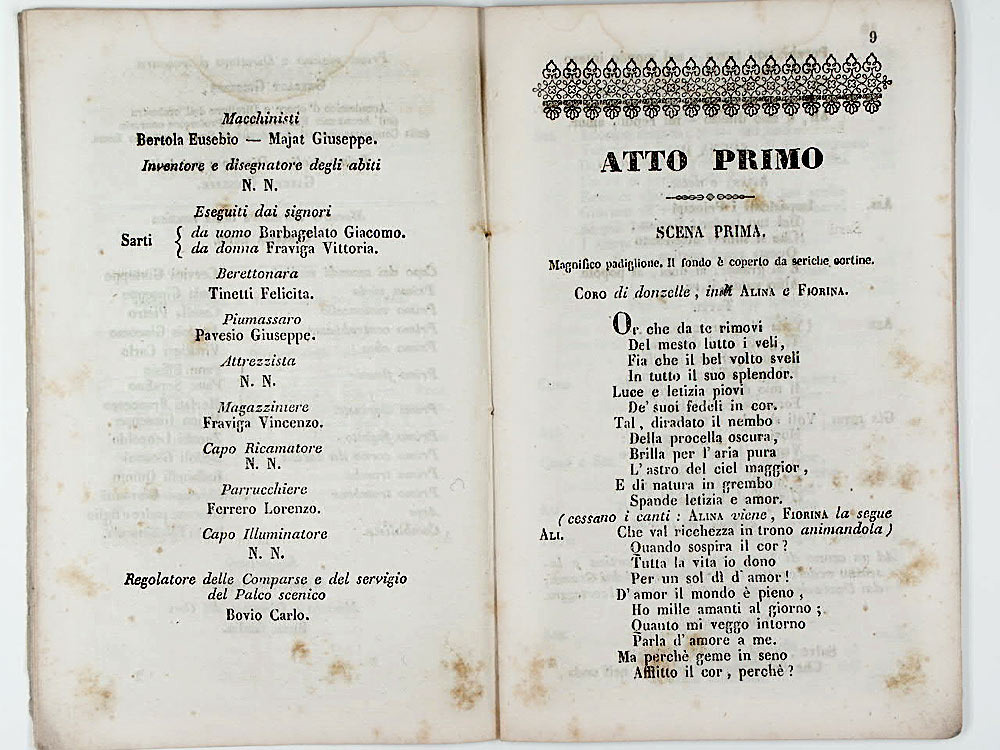 Macchinisti
Bertola Eusebio — Majat Giuseppe.
Inventore e disegnatore degli abiti
N. N.
Eseguiti dai signori
Sarti { da uomo Barbagelato Giacomo.
da donna Fraviga Vittoria.
Berettonara
Tinetti Felicita.
Piumassaro
Pavesio Giuseppe.
Attrezzista
N. N.
Magazziniere
Fraviga Vincenzo.
Capo Ricamatore
N. N.
Parrucchiere
Ferrero Lorenzo.
Capo Illuminatore
N. N.
Regolatore delle Comparse e del servigio
del Palco scenico
Bovio Carlo.
9
ATTO PRIMO
SCENA PRIMA.
Magnifico padiglione. Il fondo è coperto da seriche cortine.
CORO di donzelle, indi ALINA e FIORINA.
Or che da te rimovi
Del mesto lutto i veli,
Fia che il bel volto sveli
In tutto il suo splendor.
Luce e letizia piovi
De' suoi fedeli in cor.
Tal, diradato il nembo
Della procella oscura,
Brilla per l'aria pura
L'astro del ciel maggior,
E di natura in grembo
Spande letizia e amor.
(cessano i canti: ALINA viene, FIORINA la segue
ALI. Che val ricchezza in trono animandola)
Quando sospira il cor?
Tutta la vita io dono
Per un sol dì d'amor!
D'amor il mondo è pieno,
Ho mille amanti al giorno;
Quanto mi veggo intorno
Parla d'amore a me.
Ma perchè geme in seno
Afflitto il cor, perchè?